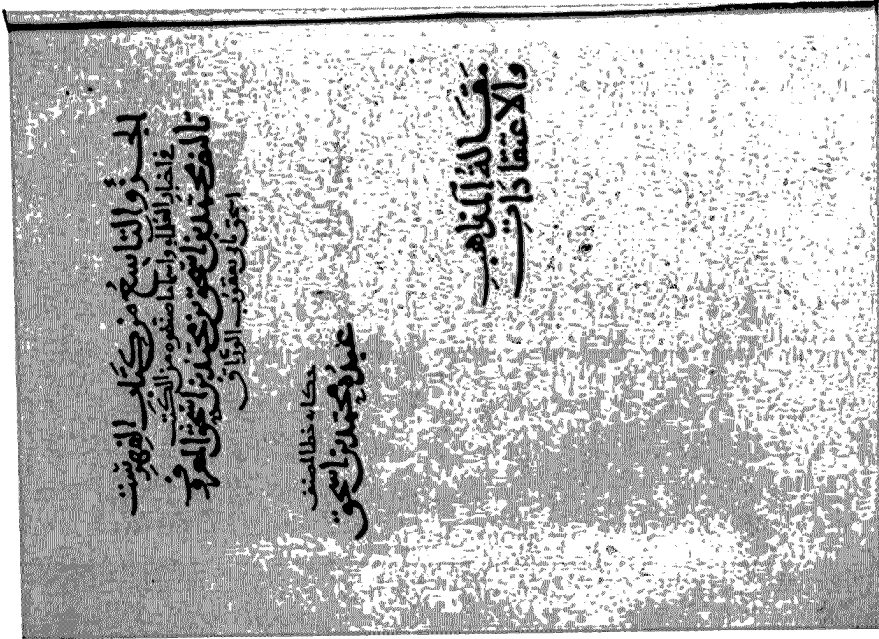 الجزو التاسع من كتاب الفهرست
في اخبار العلما واسما ما صنفوه من الكتب
تاليف محمد بن اسحق بن محمد بن اسحق المعروف
اسحق بابن يعقوب الوراق
حكاية خط المصنف
عبده محمد بن اسحق
مقالة المذاهب
والاعتقادات